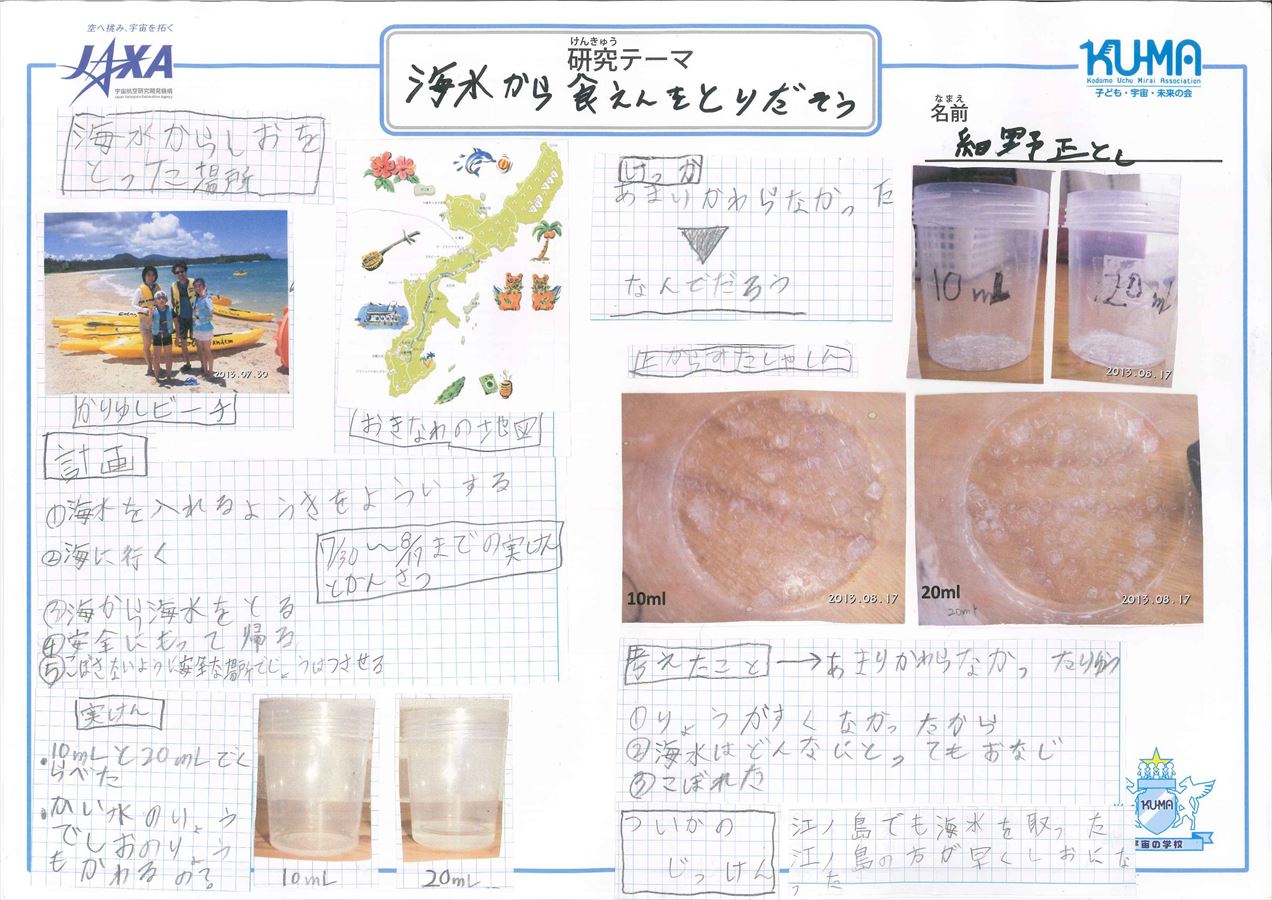 空へ挑み、宇宙を拓く
JAXA
宇宙航空研究開発機構
Japan Aerospace Exploration Agency
けんきゅう
研究テーマ
海水から食えんをとりだそう
KU-MA
Kodomo Uchu Mirai Association
子ども・宇宙・未来の会
なまえ
名前
細野正とし
海水からしおを
とった場所
2013.07.30
かりゆしビーチ
おきなわの地図
計画
①海水を入れるようきをよういする
②海に行く
7/30〜8/17までの実けん
とかんさつ
③海から海水をとる
④安全にもって帰る
⑤こぼさないように安全な場所でじょうはつさせる
実けん
•10mLと20mLでく
らべた
•かい水のりょう
でしおのりょう
もかわるの?
10mL
20mL
けっか
あまいかわらなかった
なんでだろう
上からすたしゃしん
10mL
20mL
2013.08.17
10ml
2013.08.17
20ml
20ml
2013.08.17
考えたこと→あまりかわらなかったりゆう
①りょうがすくなかったから
②海水はどんなにとってもおなじ
③こぼれた
ついかの
じっけん
江ノ島でも海水を取った
江ノ島の方が早くしおにな
った
KUMA
宇宙の学校